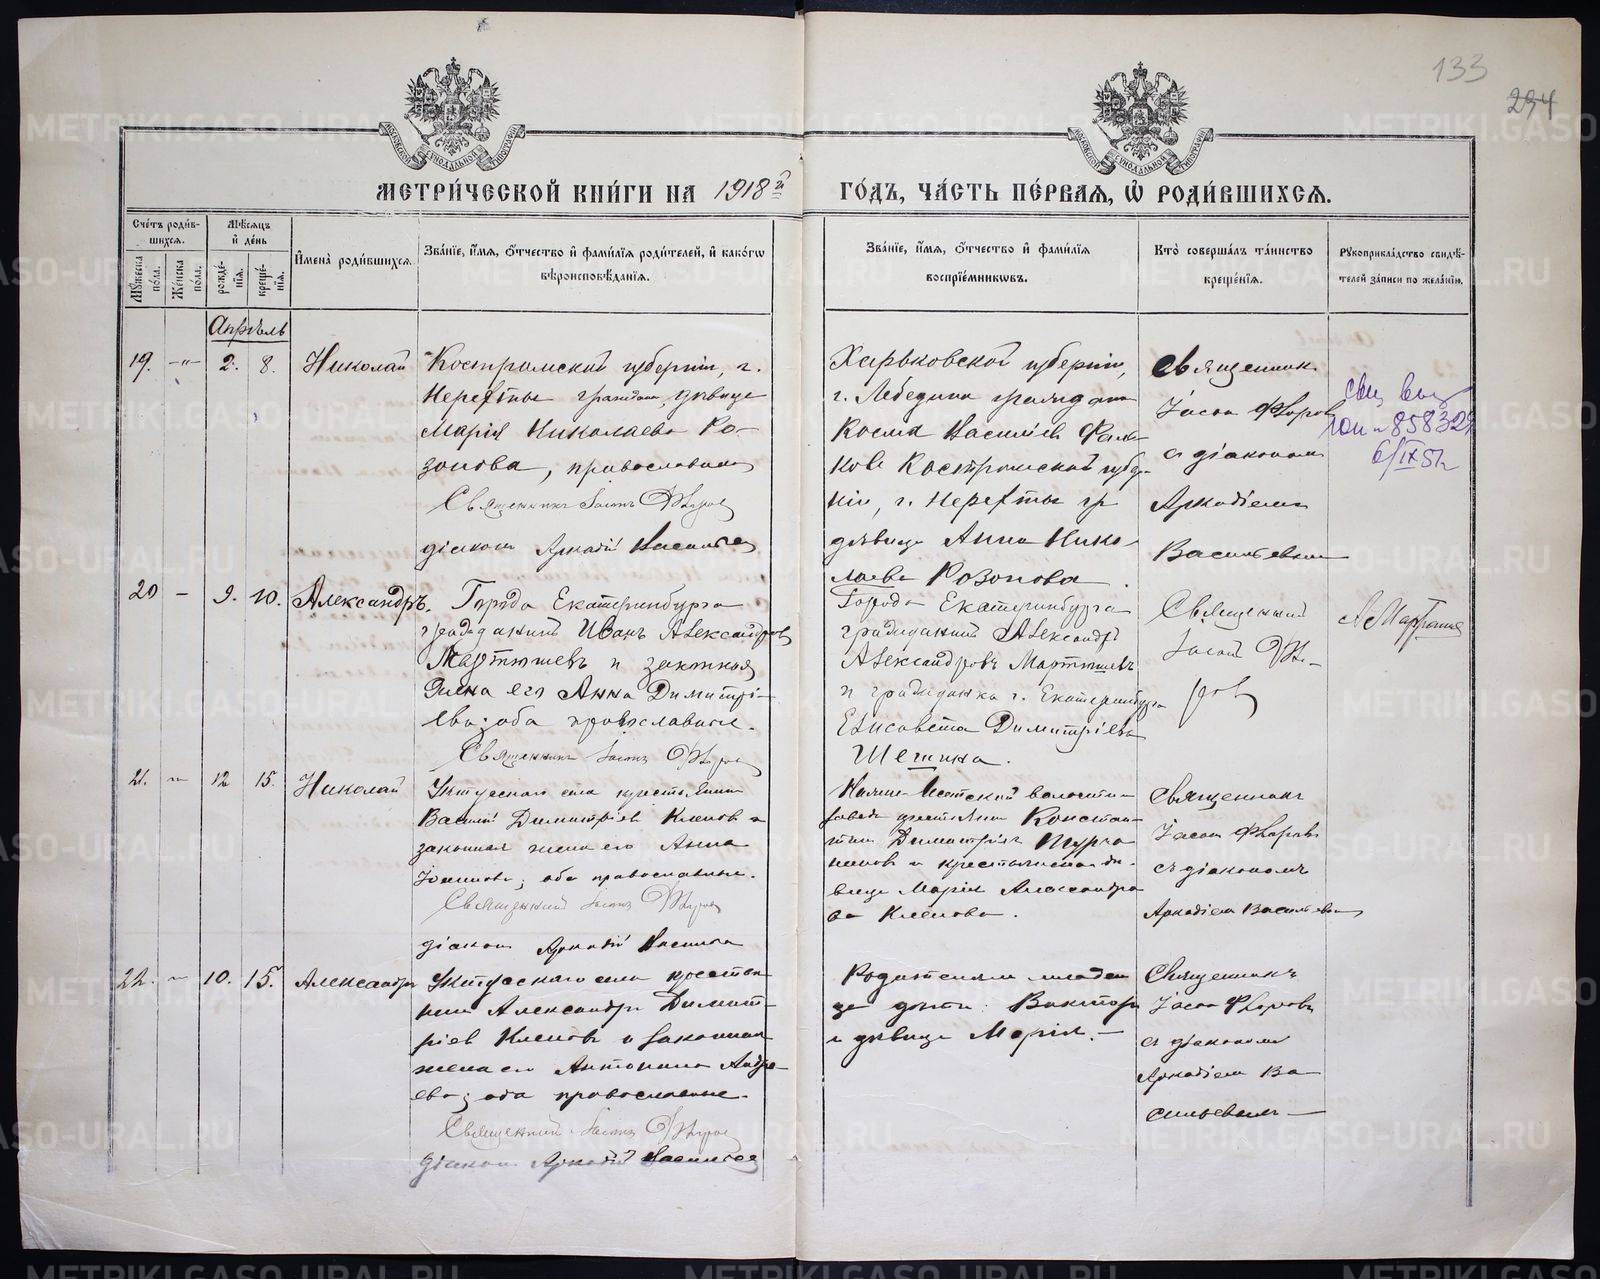 133
294
МЕТРИ́ЧЕСКОЙ КНИ́ГИ НА 1918 й ГО́ДЪ, ЧА́СТЬ ПЕ́РВАЯ, Ѡ РОДИ́ВШИХСЯ.
Сче́тъ роди́в-
шихся.
Мꙋжеска по́ла.
Же́нска по́ла.
Мѣ́сяцъ
и де́нь
рожде́-
нїя.
креще́-
нїя.
И̓мена̀ роди́вшихся.
Зва́нїе, и́мя, о́тчество и фами́лїя роди́телей, и како́гѡ
вѣроисповѣ́данїя.
Зва́нїе, и́мя, о́тчество и фами́лїя
воспрїе́мникѡвъ.
Кто̀ соверша́лъ та́инство
креще́нїя.
Рꙋкоприкла́дство свидѣ́-
телей за́писи по жела́нїю.
Апрѣль
19. —"— 2. 8. Николай
Костромской губерніи, г.
Нерехты гражданка, дѣвица
Марія Николаева Ро-
зонова, православная
Священникъ Іасонъ Флоровъ
діаконъ Аркадій Васильевъ
Харьковской губерніи,
г. Лебедина гражданинъ
Косма Василіевъ
Костромской губер-
ніи, г. Нерехты гр
дѣвица Анна Нико-
лаева Розонова.
Священникъ
Іасонъ Флоровъ
съ діакономъ
Аркадіемъ
Васильевымъ
858329
6/IX 51г
20 — 9. 10. Александръ.
Города Екатеринбурга
гражданинъ Иванъ Александровъ
Мартюшевъ и законная
жена его Анна Димитрі-
ева; оба православные.
Священникъ Іасонъ Флоровъ
Города Екатеринбурга
гражданинъ Александръ
Александровъ Мартюшевъ
и гражданка г. Екатеринбурга
Елисавета Димитріева
Священникъ
Іасонъ Фло-
ровъ
21. — 12 15. Николай
Уктусскаго села крестьянинъ
Василій Димитріевъ Клеповъ и
законная жена его Анна
Іоаннова; оба православные.
Священникъ Іасонъ Флоровъ
діаконъ Аркадій Васильевъ
Исетской волости
крестьянинъ Констан-
тинъ Димитріевъ
и крестьянская дѣ-
вица Марія Александро-
ва Клепова.
Священникъ
Іасонъ Флоровъ
съ діакономъ
Аркадіемъ Васильевымъ
22. — 10. 15. Александръ
Уктусскаго села крестья-
нинъ Александръ Димит-
ріевъ Клеповъ и законная
жена его Антонина Андре-
ева; оба православные.
Священникъ Іасонъ Флоровъ
діаконъ Аркадій Васильевъ
Родителями младен
ца дѣти: Викторъ
и дѣвица Марія.—
Священникъ
Іасонъ Флоровъ
съ діакономъ
Аркадіемъ Ва
сильевымъ—
METRIKI.GASO-URAL.RU